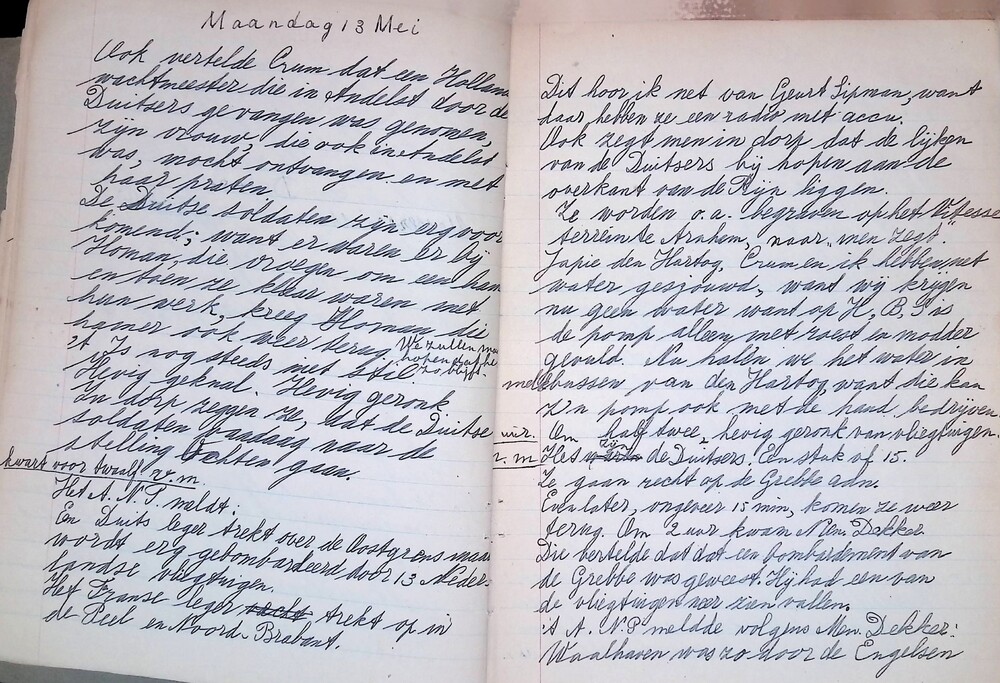 Maandag 13 Mei
Ook vertelde Crum dat een Hollan
wachtmeester die in Andelst door de
Duitsers gevangen was genomen,
zijn vrouw, die ook in Andelst
was, mocht ontvangen en met
haar praten.
De Duitse soldaten zijn erg voor
komend; want er waren er bij
Homan, die vroegen om een ham
en toen ze klaar waren met
hun werk, kreeg Homan die
hamer ook weer terug. We zullen maar
hopen dat het
zo blijft.
't Is nog steeds niet stil
Hevig geknal. Hevig geronk
In dorp zeggen ze, dat de Duitse
soldaten vandaag naar de
stelling Ochten gaan.
kwart voor twaalf v.m.
Het A.N.P. meldt:
Een Duits leger trekt over de Oostgrens maar
wordt erg gebombardeerd door 13 Neder
landse vliegtuigen.
Het Franse leger trekt op in
de Peel en Noord-Brabant.
Dit hoor ik net van Geurt Sipman, want
daar hebben ze een radio met accu.
Ook zegt men in dorp dat de lijken
van de Duitsers bij hopen aan de
overkant van de Rijn liggen.
Ze worden o.a. begraven op het Vitesse
terrein te Arnhem, naar "men zegt".
Japie den Hartog, Crum en ik hebben net
water gesjouwd, want wij krijgen
nu geen water want op H.B.S is
de pomp alleen met roest en modder
gevuld. Nu halen we het water in
melkbussen van den Hartog, want die kan
z'n pomp ook met de hand bedrijven.
Om half twee, hevig geronk van vliegtuigen.
n.m. Het zijn de Duitsers. Een stuk of 15.
Ze gaan recht op de Grebbe aan.
Even later, ongeveer 15 min, komen ze weer
terug. Om 2 uur kwam Men. Dekker.
Die vertelde dat dat een bombardement van
de Grebbe was geweest. Hij had een van
de vliegtuigen neer zien vallen.
't A.N.P meldde volgens Men. Dekker:
Waalhaven was zo door de Engelsen